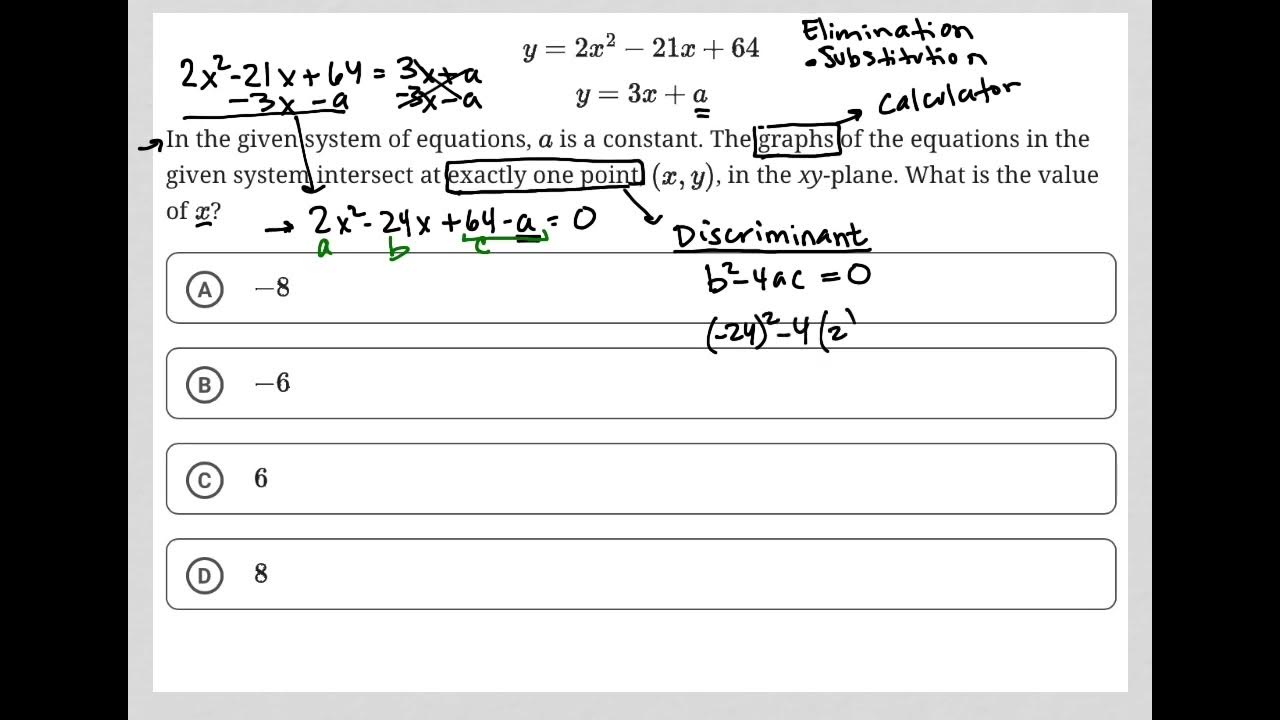 Elimination
• Substitution
y = 2x² − 21x + 64
2x²-21x+64 = 3x+a
y = 3x + a
-3x -a -3x-a
Calculator
In the given system of equations, a is a constant. The graphs of the equations in the
given system intersect at exactly one point, (x, y), in the xy-plane. What is the value
of x?
→ 2x²-24x+64-a=0
a b c
Discriminant
b²-4ac =0
(-24)²-4(2)
A −8
B −6
C 6
D 8